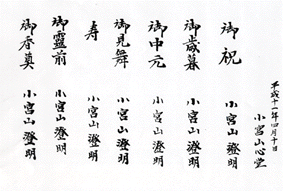 平成十一年四月十日
小宮山心堂
御祝
小宮山澄明
御歳暮
小宮山澄明
御中元
小宮山澄明
御見舞
小宮山澄明
寿
小宮山澄明
御靈前
小宮山澄明
御香奠
小宮山澄明